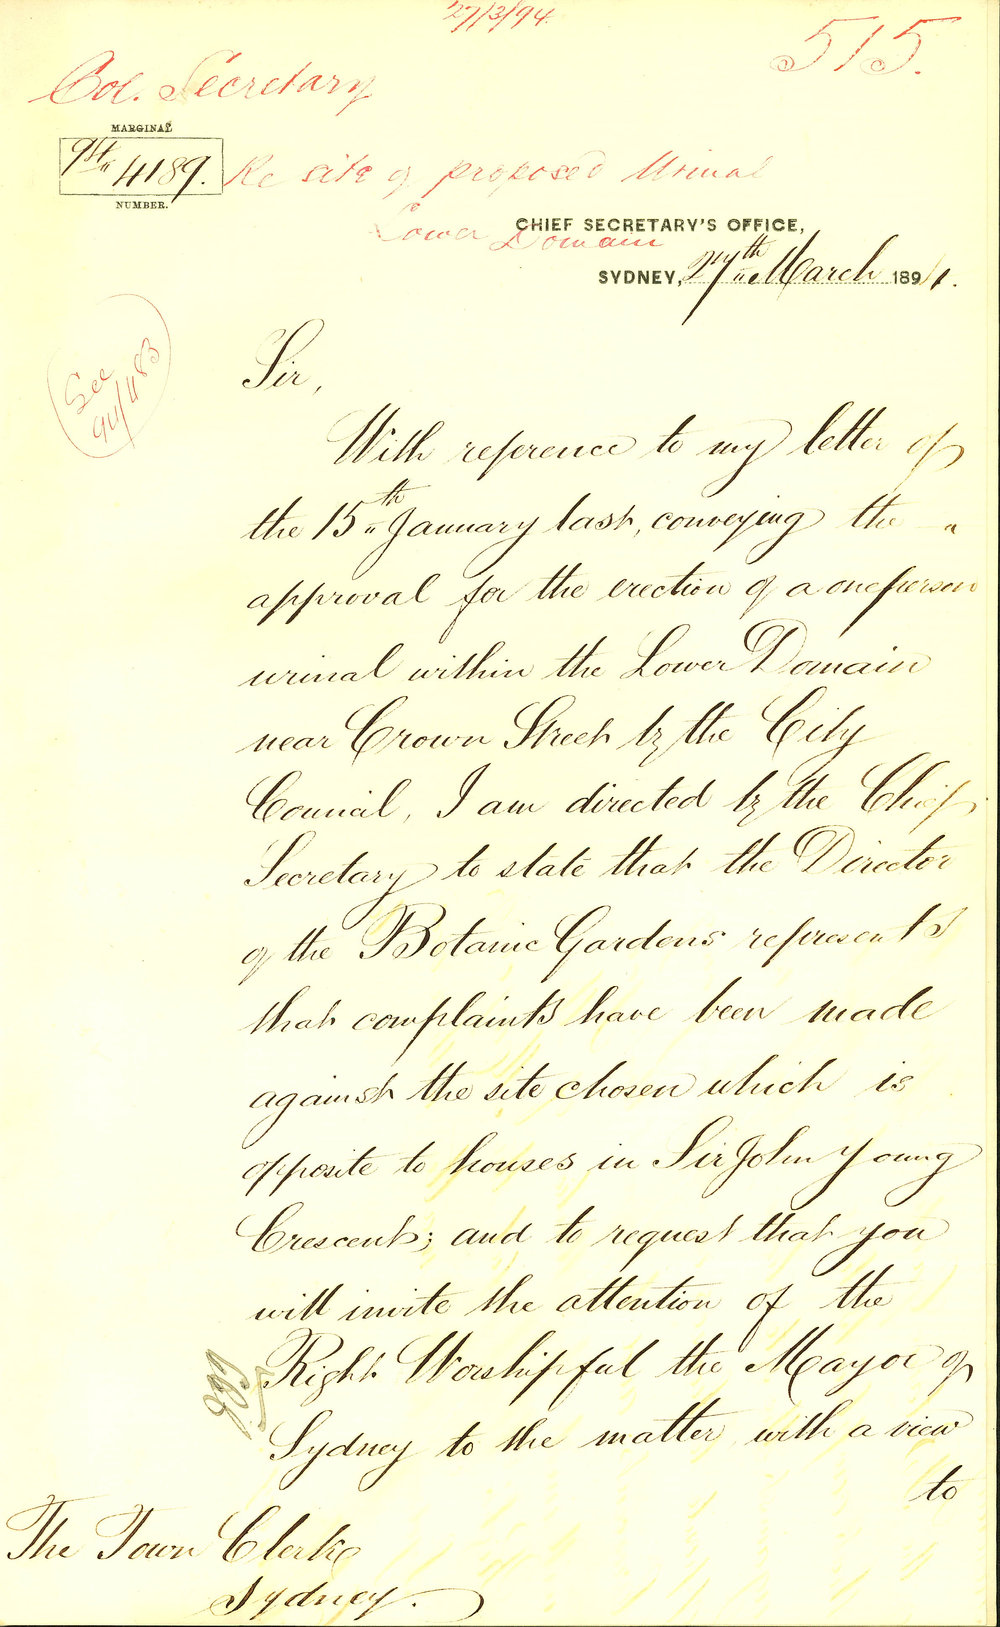 27/3/94
515.
Col. Secretary
MARGINAL
4189.
NUMBER.
Re site of proposed Urinal
Lower Domain
CHIEF SECRETARY'S OFFICE,
SYDNEY, 27th March 1894.
See
94/483
Sir,
With reference to my letter of
the 15th January last, conveying the
approval for the erection of a one person
urinal within the Lower Domain
near Crown Street by the City
Council, I am directed by the Chief
Secretary to state that the Director
of the Botanic Gardens represents
that complaints have been made
against the site chosen which is
opposite to houses in Sir John Young
Crescent; and to request that you
will invite the attention of the
Right Worshipful the Mayor of
Sydney to the matter with a view
to
The Town Clerk
Sydney.